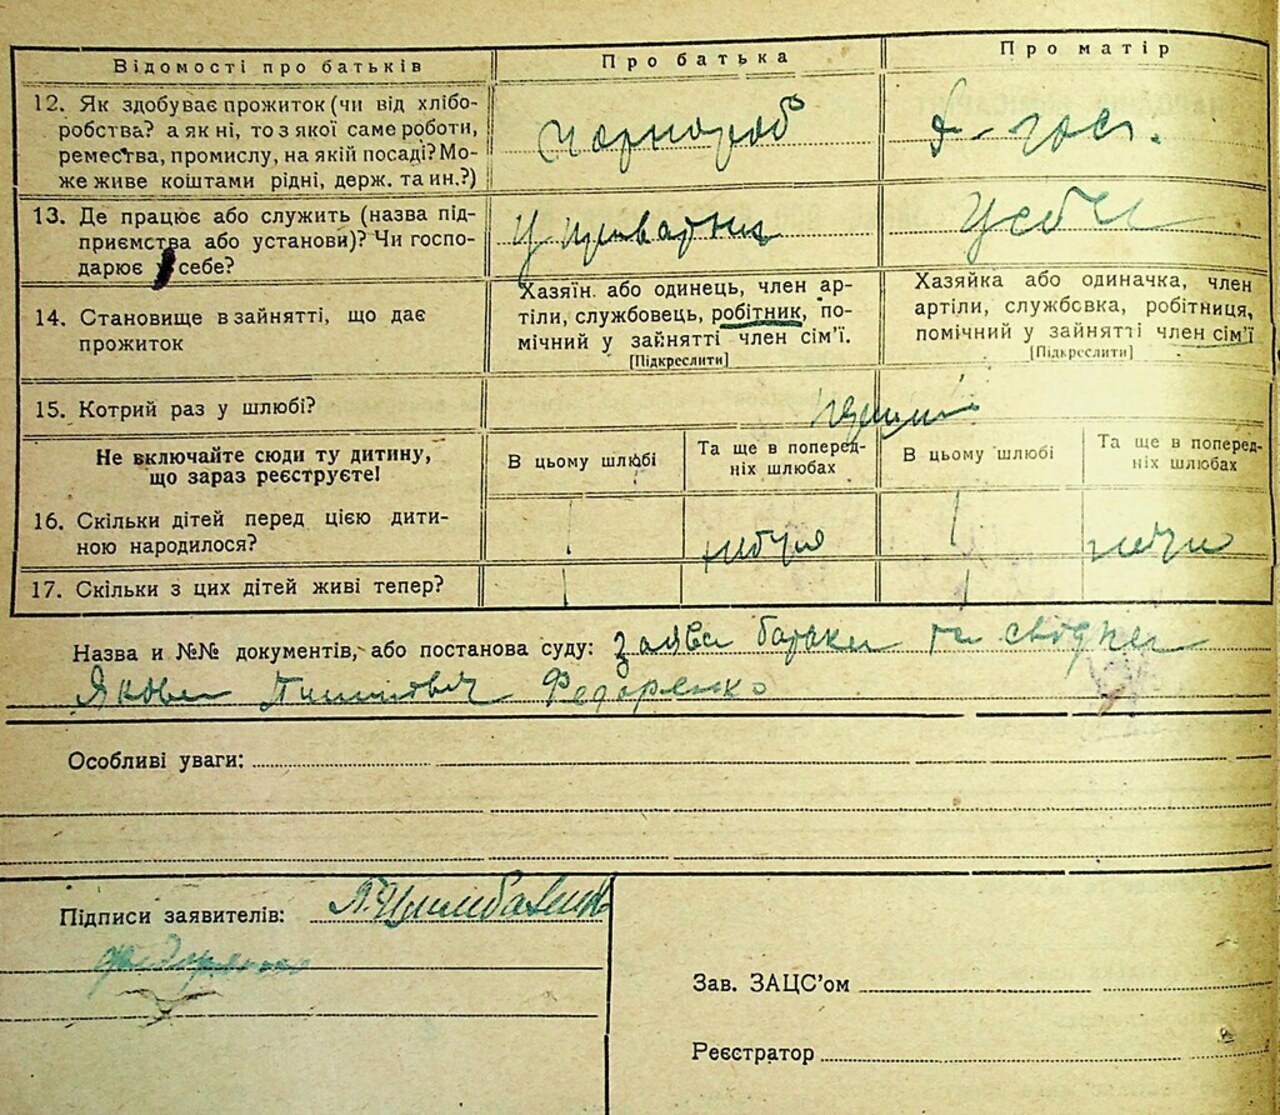 Відомості про батьків Про батька Про матір
12. Як здобуває прожиток (чи від хлібо-
робства? а як ні, то з якої саме роботи,
ремества, промислу, на якій посаді? Мо-
же живе коштами рідні, держ. та ин.?)
Чорнороб Д-гост.
13. Де працює або служить (назва під-
приємства або установи)? Чи госпо-
дарює у себе?
У приватних У себе
14. Становище в зайнятті, що дає
прожиток
Хазяїн або одинець, член ар-
тіли, службовець, робітник, по-
мічний у зайнятті член сім'ї.
[Підкреслити]
Хазяйка або одиначка, член
артіли, службовка, робітниця,
помічний у зайнятті член сім'ї
[Підкреслити]
15. Котрий раз у шлюбі?
Не включайте сюди ту дитину,
що зараз реєструєте!
В цьому шлюбі Та ще в поперед-
ніх шлюбах В цьому шлюбі Та ще в поперед-
ніх шлюбах
16. Скільки дітей перед цією дити-
ною народилося?
1 1
17. Скільки з цих дітей живі тепер?
1 1
Назва и №№ документів, або постанова суду: заява батька та свідка
Якова Федоренко
Особливі уваги:
Підписи заявителів:
Федоренко
Зав. ЗАЦС'ом
Реєстратор